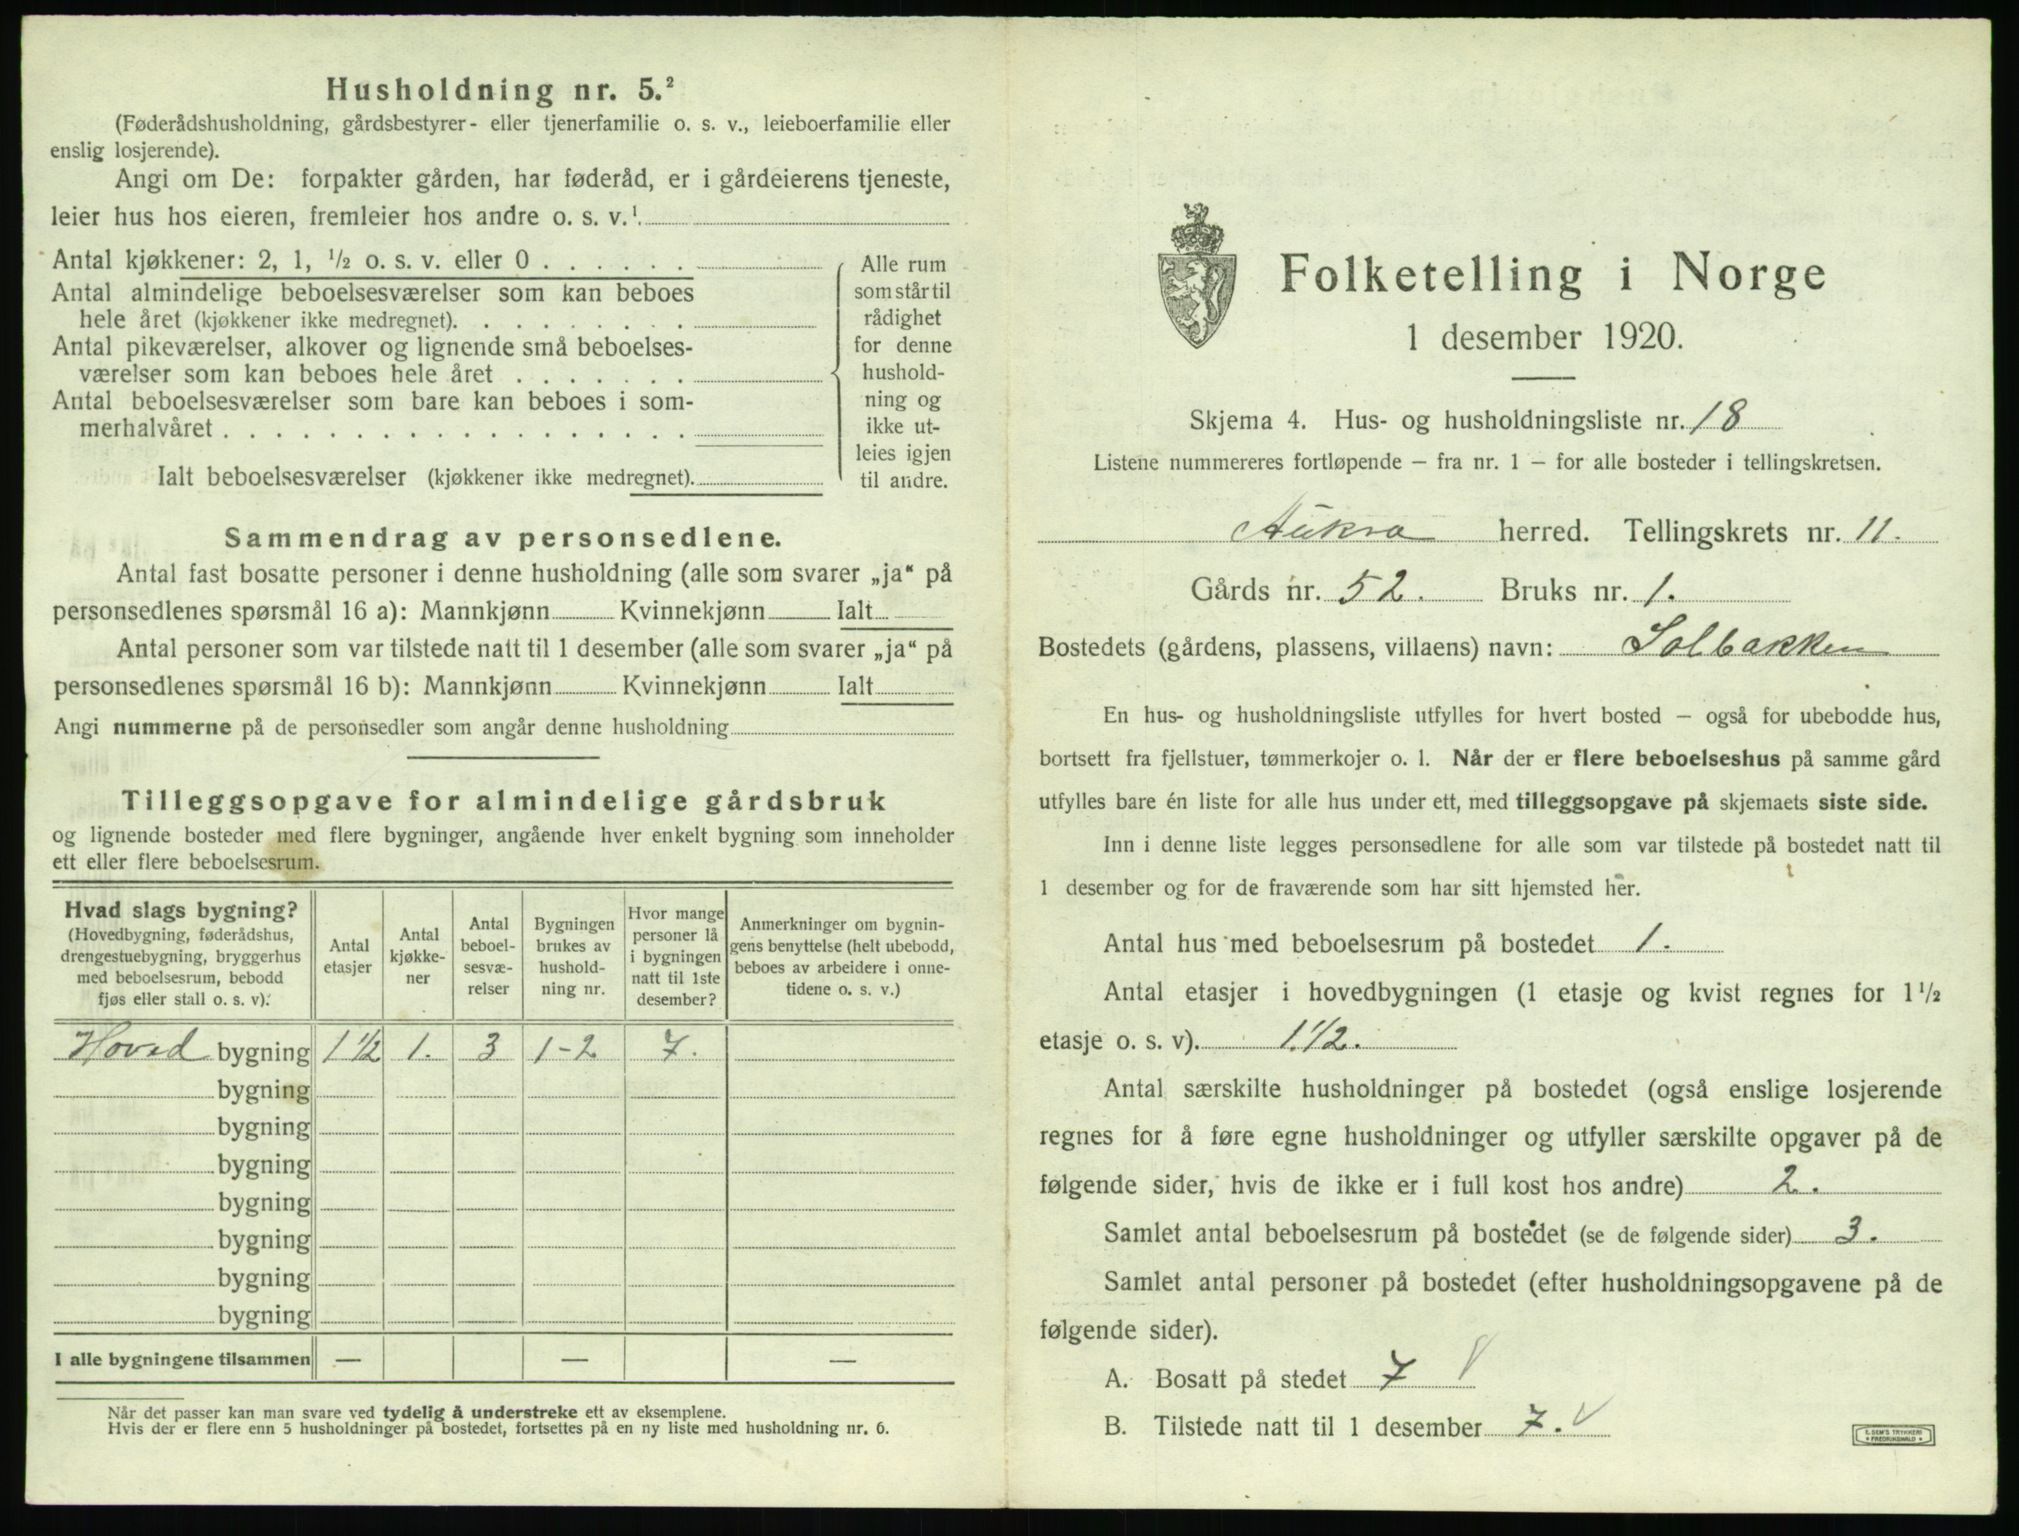 Husholdning nr. 5.²
(Føderådshusholdning, gårdsbestyrer- eller tjenerfamilie o. s. v., leieboerfamilie eller
enslig losjerende).
Angi om De: forpakter gården, har føderåd, er i gårdeierens tjeneste,
leier hus hos eieren, fremleier hos andre o. s. v.¹
Antal kjøkkener: 2, 1, ½ o. s. v. eller 0 . . . . . .
Antal almindelige beboelsesværelser som kan beboes
hele året (kjøkkener ikke medregnet). . . . . . . . .
Antal pikeværelser, alkover og lignende små beboelses-
værelser som kan beboes hele året . . . . . . .
Antal beboelsesværelser som bare kan beboes i som-
merhalvåret . . . . . . . . . . . . . . . . . .
Ialt beboelsesværelser (kjøkkener ikke medregnet).
Alle rum
som står til
rådighet
for denne
hushold-
ning og
ikke ut-
leies igjen
til andre.
Sammendrag av personsedlene.
Antal fast bosatte personer i denne husholdning (alle som svarer „ja“ på
personsedlenes spørsmål 16 a): Mannkjønn Kvinnekjønn Ialt
Antal personer som var tilstede natt til 1 desember (alle som svarer „ja“ på
personsedlenes spørsmål 16 b): Mannkjønn Kvinnekjønn Ialt
Angi nummerne på de personsedler som angår denne husholdning
Tilleggsopgave for almindelige gårdsbruk
og lignende bosteder med flere bygninger, angående hver enkelt bygning som inneholder
ett eller flere beboelsesrum.
Hvad slags bygning?
(Hovedbygning, føderådshus,
drengestuebygning, bryggerhus
med beboelsesrum, bebodd
fjøs eller stall o. s. v).
Antal
etasjer
Antal
kjøkke-
ner
Antal
beboel-
sesvæ-
relser
Bygningen
brukes av
hushold-
ning nr.
Hvor mange
personer lå
i bygningen
natt til 1ste
desember?
Anmerkninger om bygnin-
gens benyttelse (helt ubebodd,
beboes av arbeidere i onne-
tidene o. s. v.)
Hoved bygning 1 ½ 1. 3 1-2 7.
bygning
bygning
bygning
bygning
bygning
bygning
bygning
I alle bygningene tilsammen — — —
Når det passer kan man svare ved tydelig å understreke ett av eksemplene.
Hvis der er flere enn 5 husholdninger på bostedet, fortsettes på en ny liste med husholdning nr. 6.
Folketelling i Norge
1 desember 1920.
Skjema 4. Hus- og husholdningsliste nr. 18
Listene nummereres fortløpende — fra nr. 1 — for alle bosteder i tellingskretsen.
Aukra herred. Tellingskrets nr. 11.
Gårds nr. 52. Bruks nr. 1.
Bostedets (gårdens, plassens, villaens) navn: Solbakken
En hus- og husholdningsliste utfylles for hvert bosted — også for ubebodde hus,
bortsett fra fjellstuer, tømmerkojer o. l. Når der er flere beboelseshus på samme gård
utfylles bare én liste for alle hus under ett, med tilleggsopgave på skjemaets siste side.
Inn i denne liste legges personsedlene for alle som var tilstede på bostedet natt til
1 desember og for de fraværende som har sitt hjemsted her.
Antal hus med beboelsesrum på bostedet 1.
Antal etasjer i hovedbygningen (1 etasje og kvist regnes for 1½
etasje o. s. v). 1.½.
Antal særskilte husholdninger på bostedet (også enslige losjerende
regnes for å føre egne husholdninger og utfyller særskilte opgaver på de
følgende sider, hvis de ikke er i full kost hos andre) 2.
Samlet antal beboelsesrum på bostedet (se de følgende sider) 3.
Samlet antal personer på bostedet (efter husholdningsopgavene på de
følgende sider).
A. Bosatt på stedet 7
B. Tilstede natt til 1 desember 7.
E. SEM'S TRYKKERI
FREDRIKSHALD